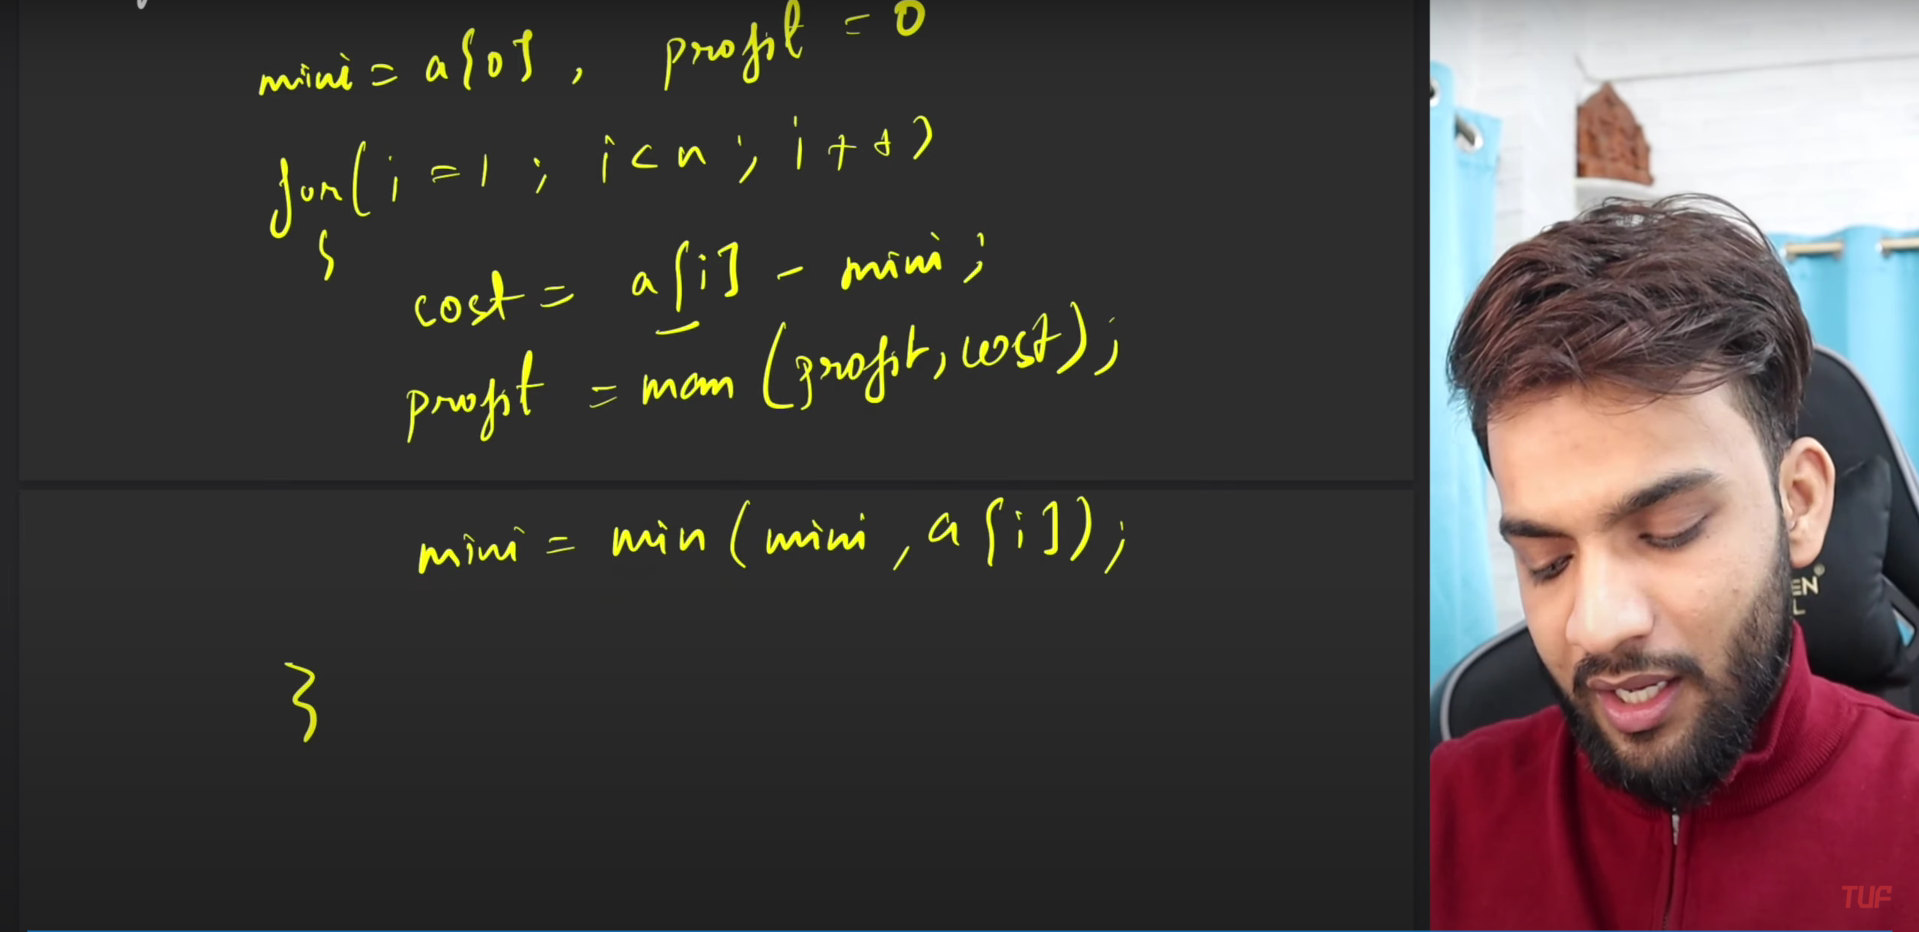 mini = a[0], profit = 0
for(i = 1 ; i < n ; i++)
{
cost = a[i] - mini;
profit = max (profit, cost);
mini = min(mini, a[i]);
}
EN
L
TUF